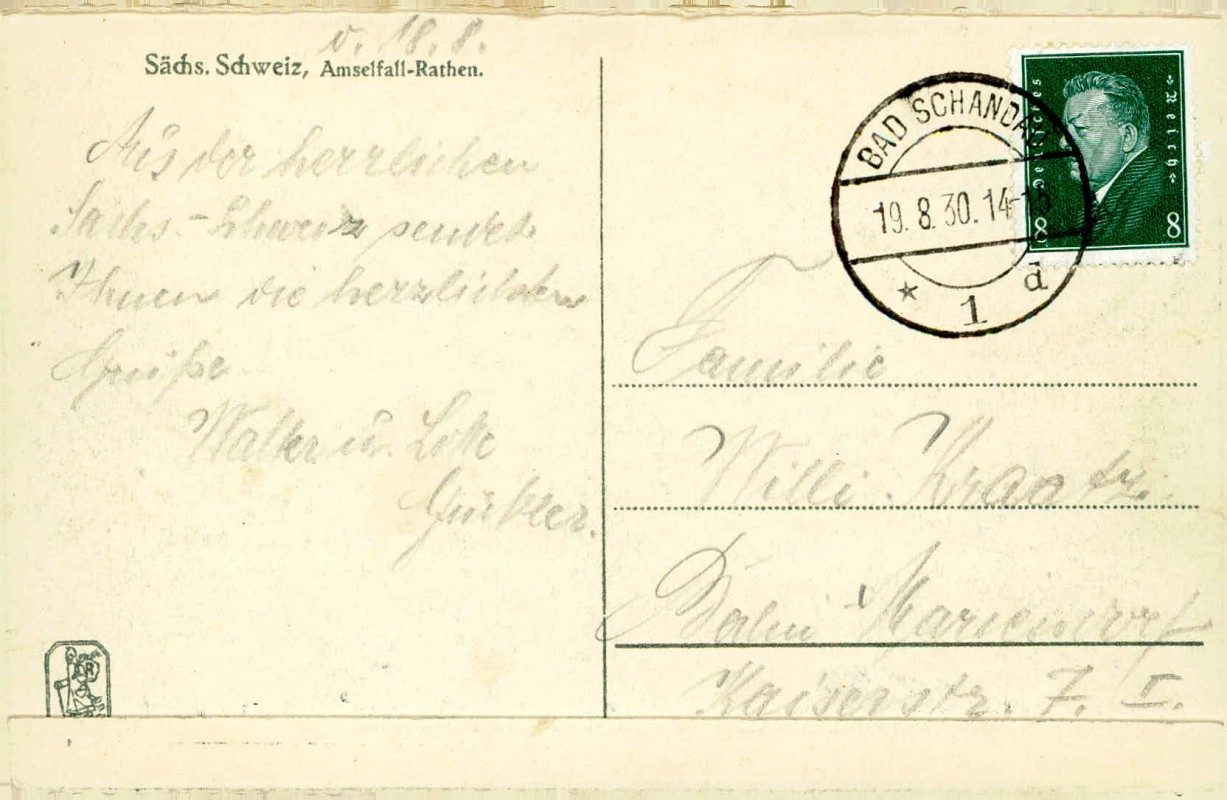 v. 18. 8.
Sächs. Schweiz, Amselfall-Rathen.
Aus der herrlichen
Sächs.-Schweiz sendet
Ihnen die herzlichsten
Grüße
Walter u. Lotte
BAD SCHANDAU
19. 8. 30. 14-15
* 1 d
Deutsches Reich
8 8
Familie
Willi Kraatz.
Berlin Mariendorf
Kaiserstr. 7. I.